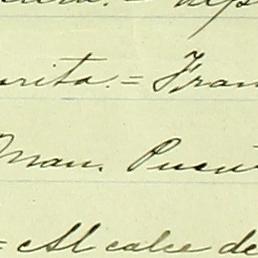 rita. = Fran
Man. Pucu
= Al calce de